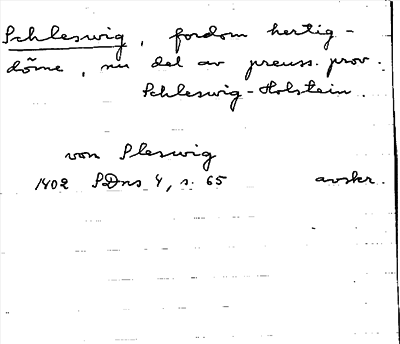 Schleswig, fordom hertig-
döme, nu del av preuss. prov.
Schleswig-Holstein.
von Sleswig
1402 SDns 4, s. 65 avskr.